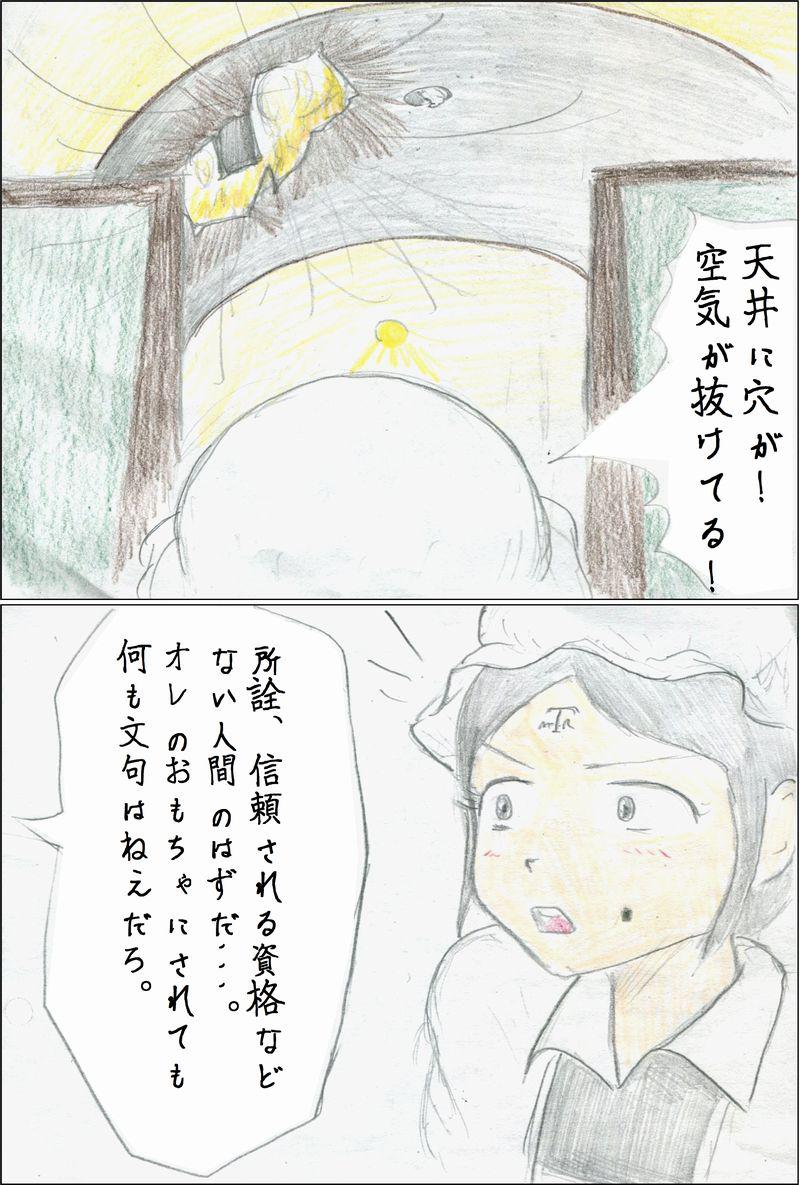 天井に穴が！
空気が抜けてる！
所詮、信頼される資格など
ない人間のはずだ・・・。
オレのおもちゃにされても
何も文句はねえだろ。